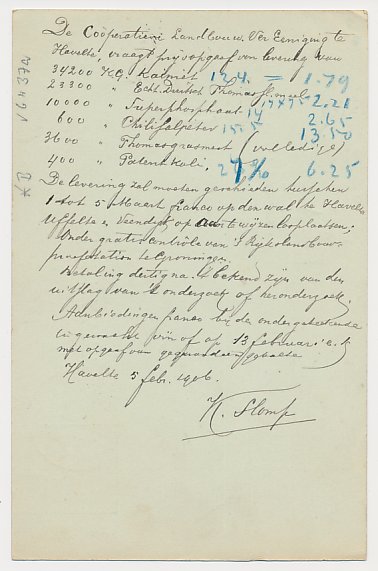 De Coöperatieve Landbouw. Ver Eeniging te
Havelte, vraagt prijsopgaaf van levering van
34200 KG Kainiet 12.4. = 1.79
23300 " Echt Duitsch Thomas
10000 " Superphosphaat 14 17 x 75 2.21
600 " Chilisalpeter 15.5 2.65
3600 " Thomas (volledige) 13.50
400 " Patentkali, 27% 6.25
De levering zal moeten geschieden tusschen
1 tot 5 Maart franco op den wal te Havelte
Uffelte en Veendijk, op aan te wijzen Loosplaatsen.
Onder gratis contrôle van 't Rijkslandbouw-
proefstation te Groningen.
Betaling dertig na 't bekend zijn van den
uitslag van 't onderzoek of heronderzoek.
Aanbiedingen franco bij de ondergeteekende
ingewacht vin of op 13 februari e.k.
met opgaaf van gegarandeerd gehalte
Havelte 5 febr. 1906.
K. Slomp